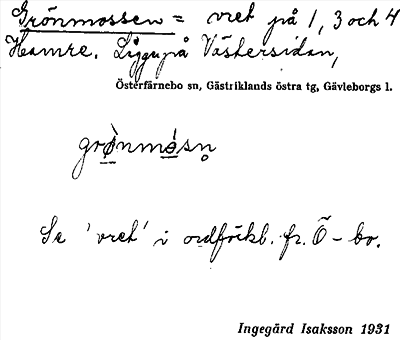 Grönmossen = vret på 1, 3 och 4
Hamre. Ligger på Västersidan,
Österfärnebo sn, Gästriklands östra tg, Gävleborgs l.
grònmósn̥
Se 'vret' i ordförkl. fr. Ö-bo.
Ingegärd Isaksson 1931